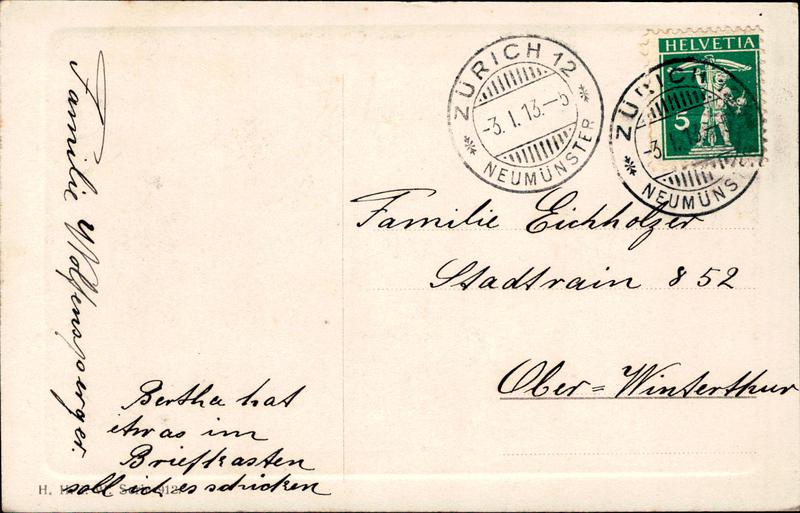 HELVETIA
5
ZÜRICH 12
-3.I.13.-5
NEUMÜNSTER
ZÜRICH
-3.I.13
NEUMÜNS
Familie Eichholzer
Stadtrain 852
Ober=Winterthur
Familie Wolfensperger.
Bertha hat
etwas im
Briefkasten
soll ich es schicken
H.